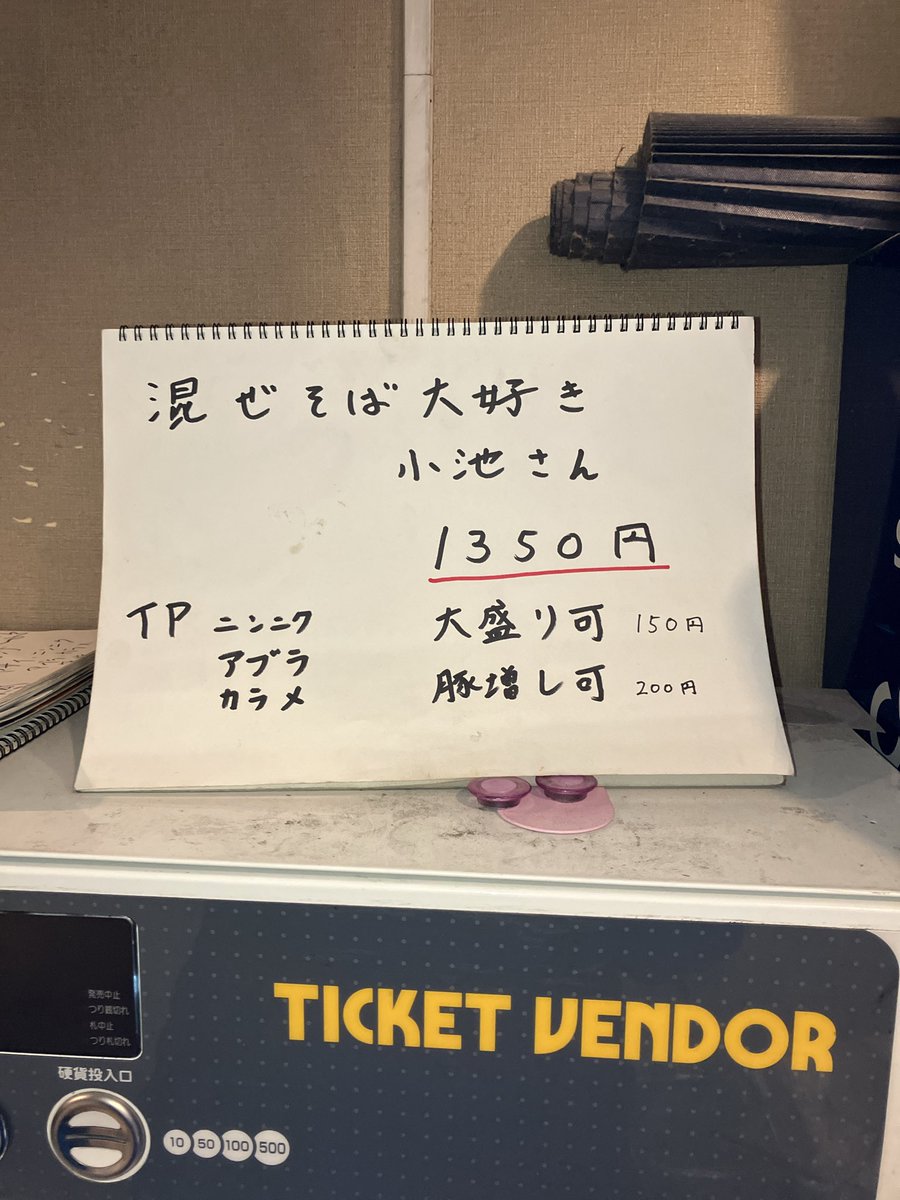 混ぜそば大好き
小池さん
1350円
TP ニンニク
アブラ
カラメ
大盛り可 150円
豚増し可 200円
発売中止
つり銭切れ
札中止
つり札切れ
硬貨投入口
10 50 100 500
TICKET VENDOR